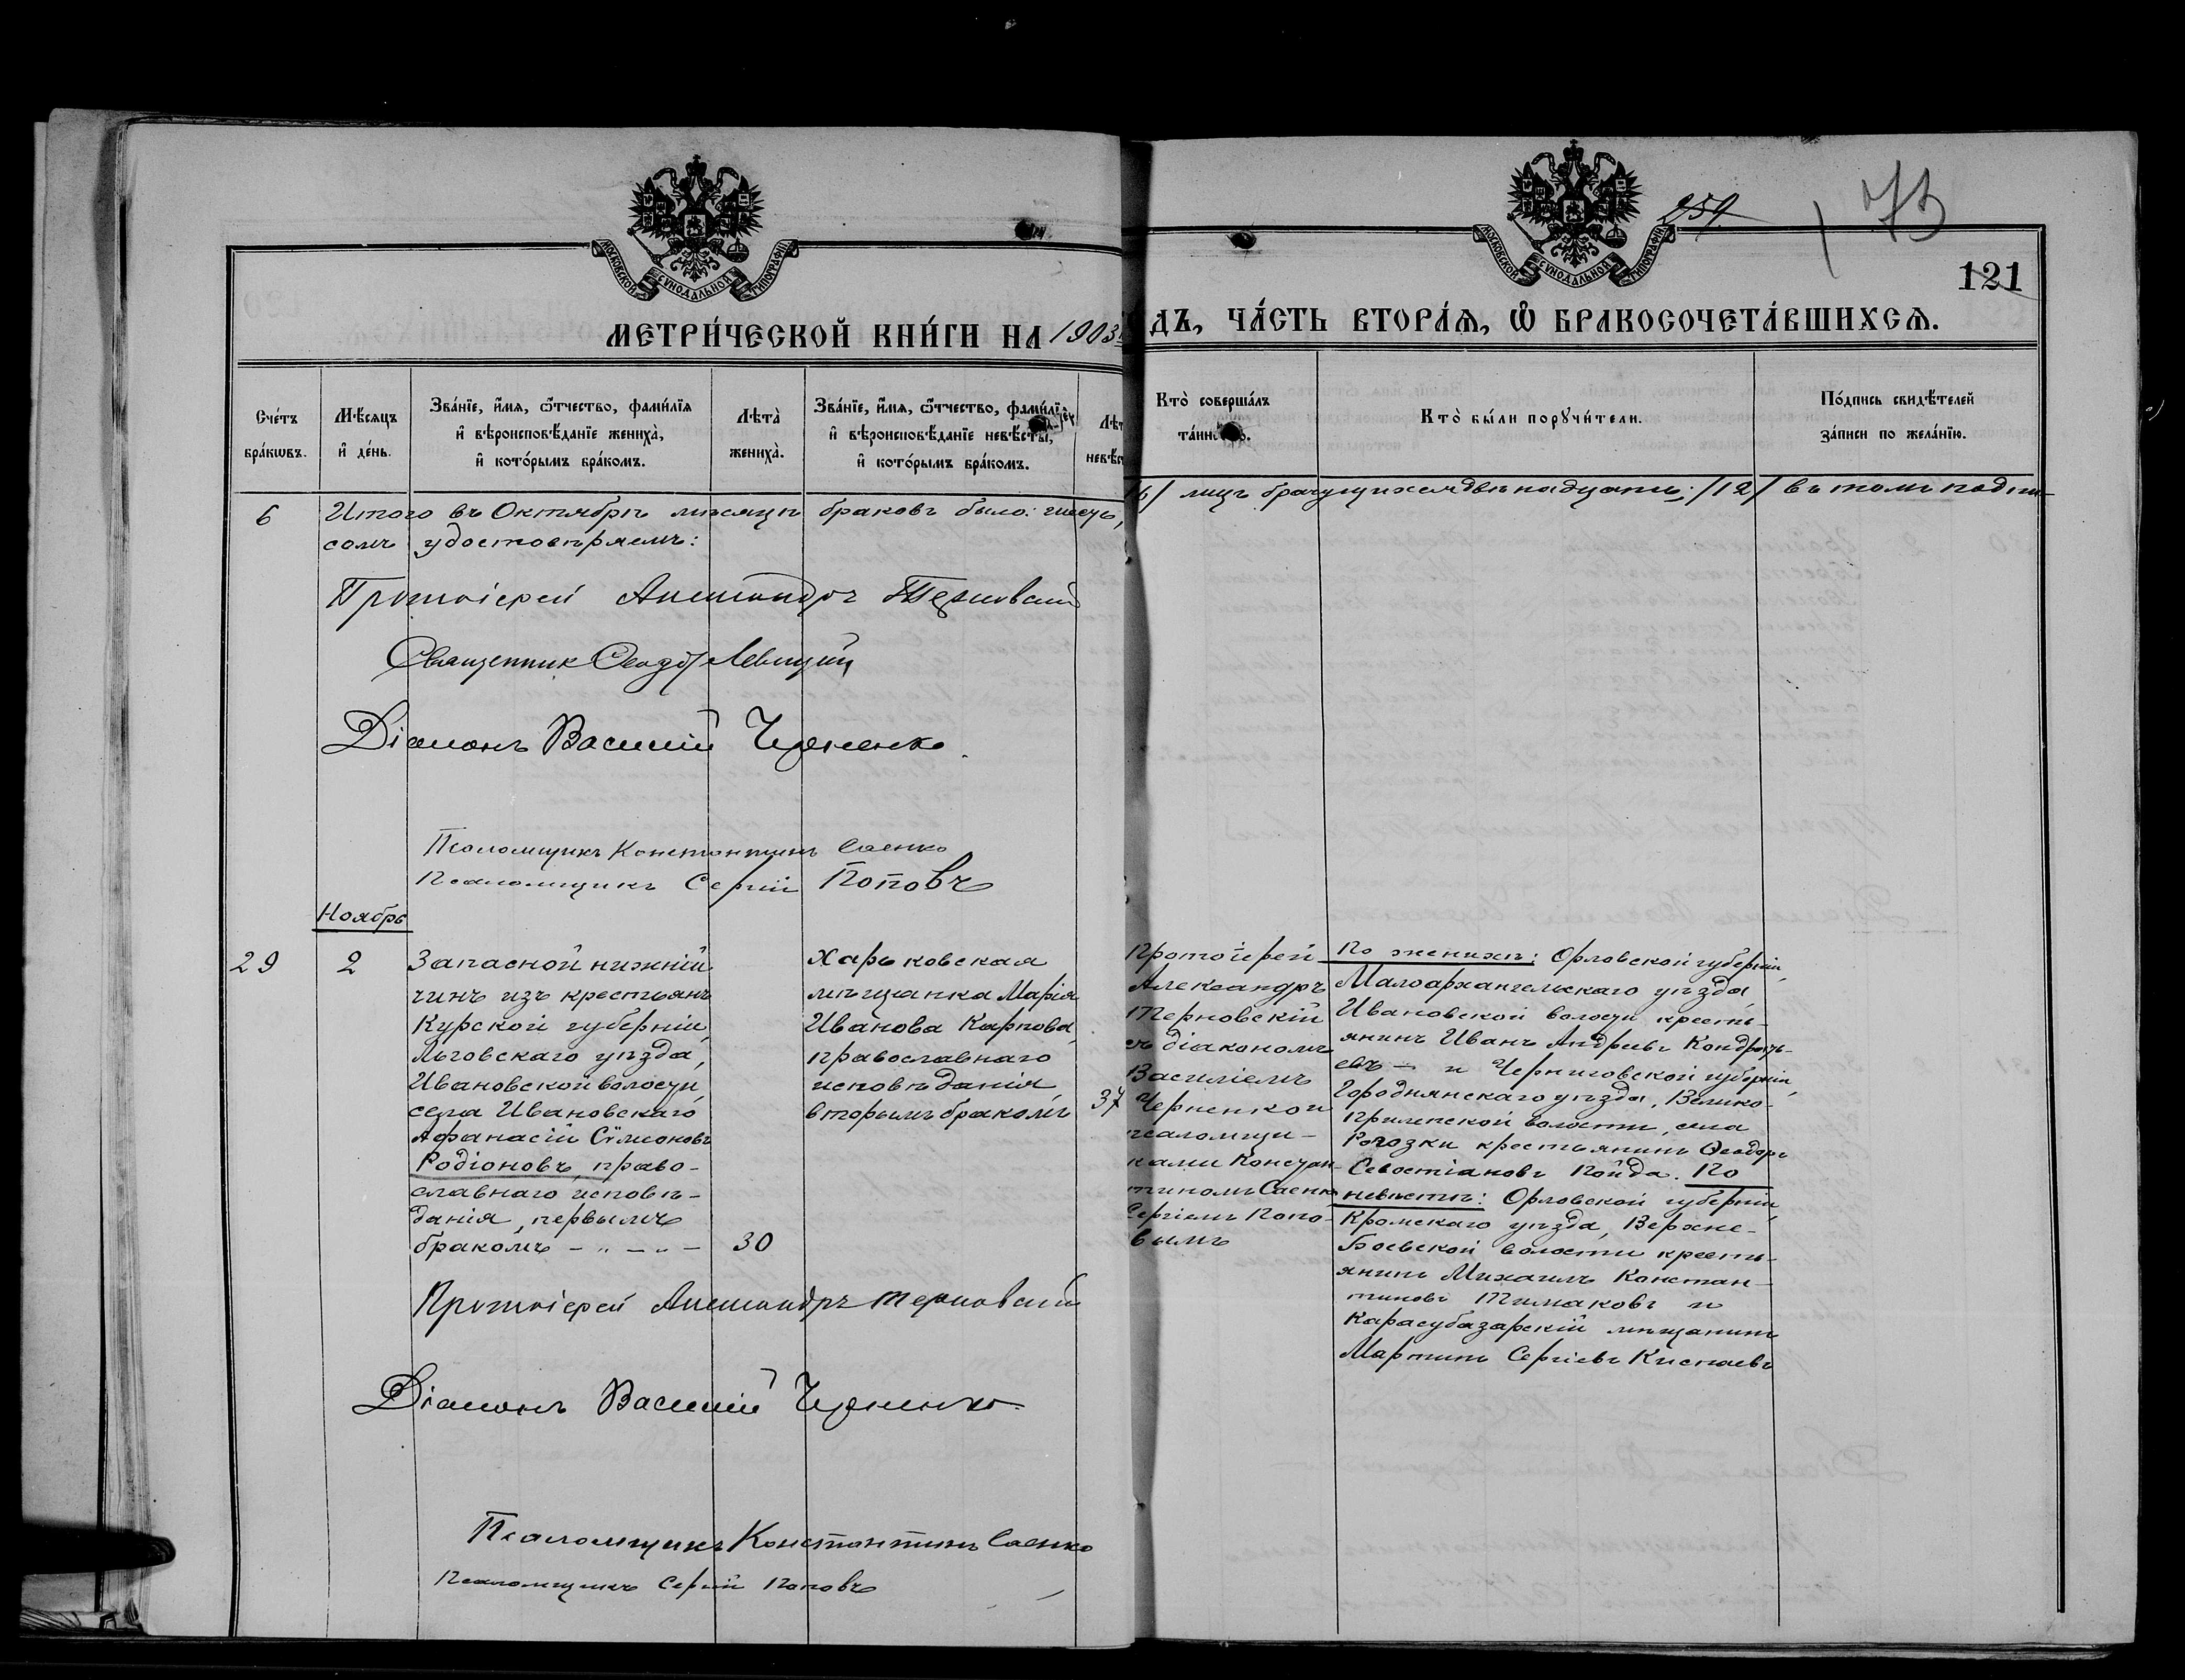 МОСКОВСКОЙ СѴНОДАЛЬНОЙ ТИПОГРАФІИ
МОСКОВСКОЙ СѴНОДАЛЬНОЙ ТИПОГРАФІИ
259
73
121
МЕТРИ́ЧЕСКОЙ КНИ́ГИ НА 1903 ДЪ, ЧА́СТЬ ВТОРА́Я, Ѡ БРАКОСОЧЕТА́ВШИХСЯ.
Сче́тъ бра́кѡвъ.
Мѣ́сяцъ и҆ де́нь.
Зва́нїе, и҆́мя, ѻ҆́тчество, фами́лїя
и҆ вѣроисповѣ́данїе жениха̀,
и҆ кото́рымъ бра́комъ.
Лѣта̀ жениха̀.
Зва́нїе, и҆́мя, ѻ҆́тчество, фами́лї
и҆ вѣроисповѣ́данїе невѣ́сты,
и҆ кото́рымъ бра́комъ.
Лѣт
невѣс
Кто̀ соверша́лъ
та́инс о.
Кто̀ бы́ли порꙋчи́тели.
По́дпись свидѣ́телей
за́писи по жела́нїю.
6 Итого въ Октябрѣ мѣсяцѣ браковъ было: шесть, /6/ лицъ брачущихся двѣнадцать; /12/ въ томъ подпи-
сомъ удостовѣряемъ:
Протоіерей Александръ Терновскій
Священник Ѳеодор Левицкій
Діаконъ Василій Черненко.
Псаломщикъ Константинъ Саенко
Псаломщикъ Сергій Поповъ
Ноябрь
29
2
Запасной нижній
чинъ изъ крестьянъ
Курской губерніи,
Льговскаго уѣзда,
Ивановской волости,
села Ивановскаго
Афанасій Сѵмеоновъ
Родіоновъ, право-
славнаго исповѣ-
данія, первымъ
бракомъ - „ - „ -
30
Харьковская
мѣщанка Марія
Иванова Карпова,
православнаго
исповѣданія
вторымъ бракомъ
37
Протоіерей
Александръ
Терновскій
съ діакономъ
Василіемъ
Черненко и
псаломщи-
ками Констан-
тиномъ Саенко
Сергіемъ Попо-
вымъ
По женихѣ: Орловской губерніи,
Малоархангельскаго уѣзда,
Ивановской волости кресть-
янинъ Иванъ Андреевъ Кондрать-
евъ - и Черниговской губерніи,
Городнянскаго уѣзда, Велико-
волости, села
крестьянинъ Ѳеодоръ
Севостіановъ Пойда. По
невѣстѣ: Орловской губерніи,
Кромскаго уѣзда, Верхне-
Боевской волости кресть-
янинъ Михаилъ Констан-
тиновъ Тимаковъ и
Карасубазарскій мѣщанинъ
Мартинъ Сергіевъ
Протоіерей Александръ Терновскій
Діаконъ Василій Черненко
Псаломщикъ Константинъ Саенко
Псаломщикъ Сергій Поповъ